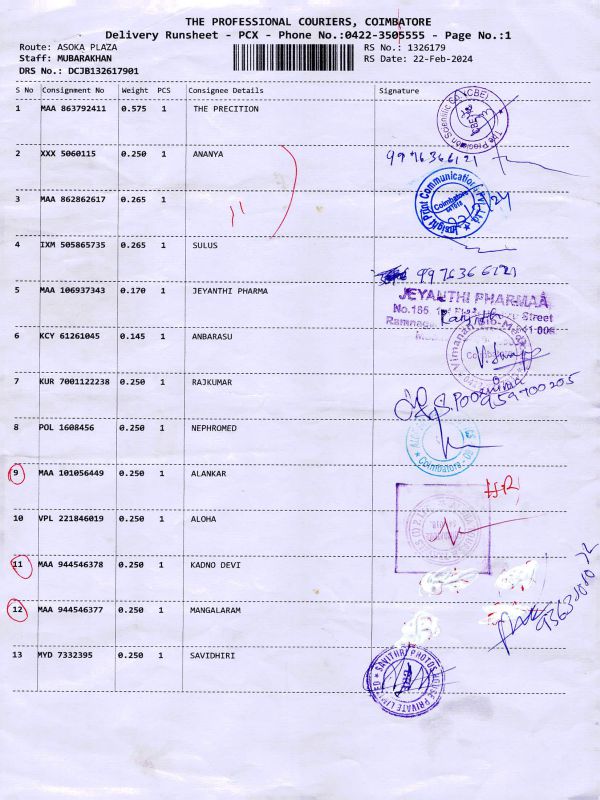 THE PROFESSIONAL COURIERS, COIMBATORE
Delivery Runsheet - PCX - Phone No.:0422-3505555 - Page No.:1
Route: ASOKA PLAZA RS No.: 1326179
Staff: MUBARAKHAN RS Date: 22-Feb-2024
DRS No.: DCJB132617901
S No Consignment No Weight PCS Consignee Details Signature
1 MAA 863792411 0.575 1 THE PRECITION
2 XXX 5060115 0.250 1 ANANYA 9976366121
3 MAA 862862617 0.265 1 "
Insight Print Communications Pvt Ltd
Coimbatore
4 IXM 505865735 0.265 1 SULUS 9976366121
5 MAA 106937343 0.170 1 JEYANTHI PHARMA
JEYANTHI PHARMAA
No.186 Street
6 KCY 61261045 0.145 1 ANBARASU
7 KUR 7001122238 0.250 1 RAJKUMAR
S. Poornima
959700205
8 POL 1608456 0.250 1 NEPHROMED
Coimbatore
9 MAA 101056449 0.250 1 ALANKAR
10 VPL 221846019 0.250 1 ALOHA
11 MAA 944546378 0.250 1 KADNO DEVI
12 MAA 944546377 0.250 1 MANGALARAM
13 MYD 7332395 0.250 1 SAVIDHIRI
SAVITHRI PHOTOS HOUSE PRIVATE LIMITED